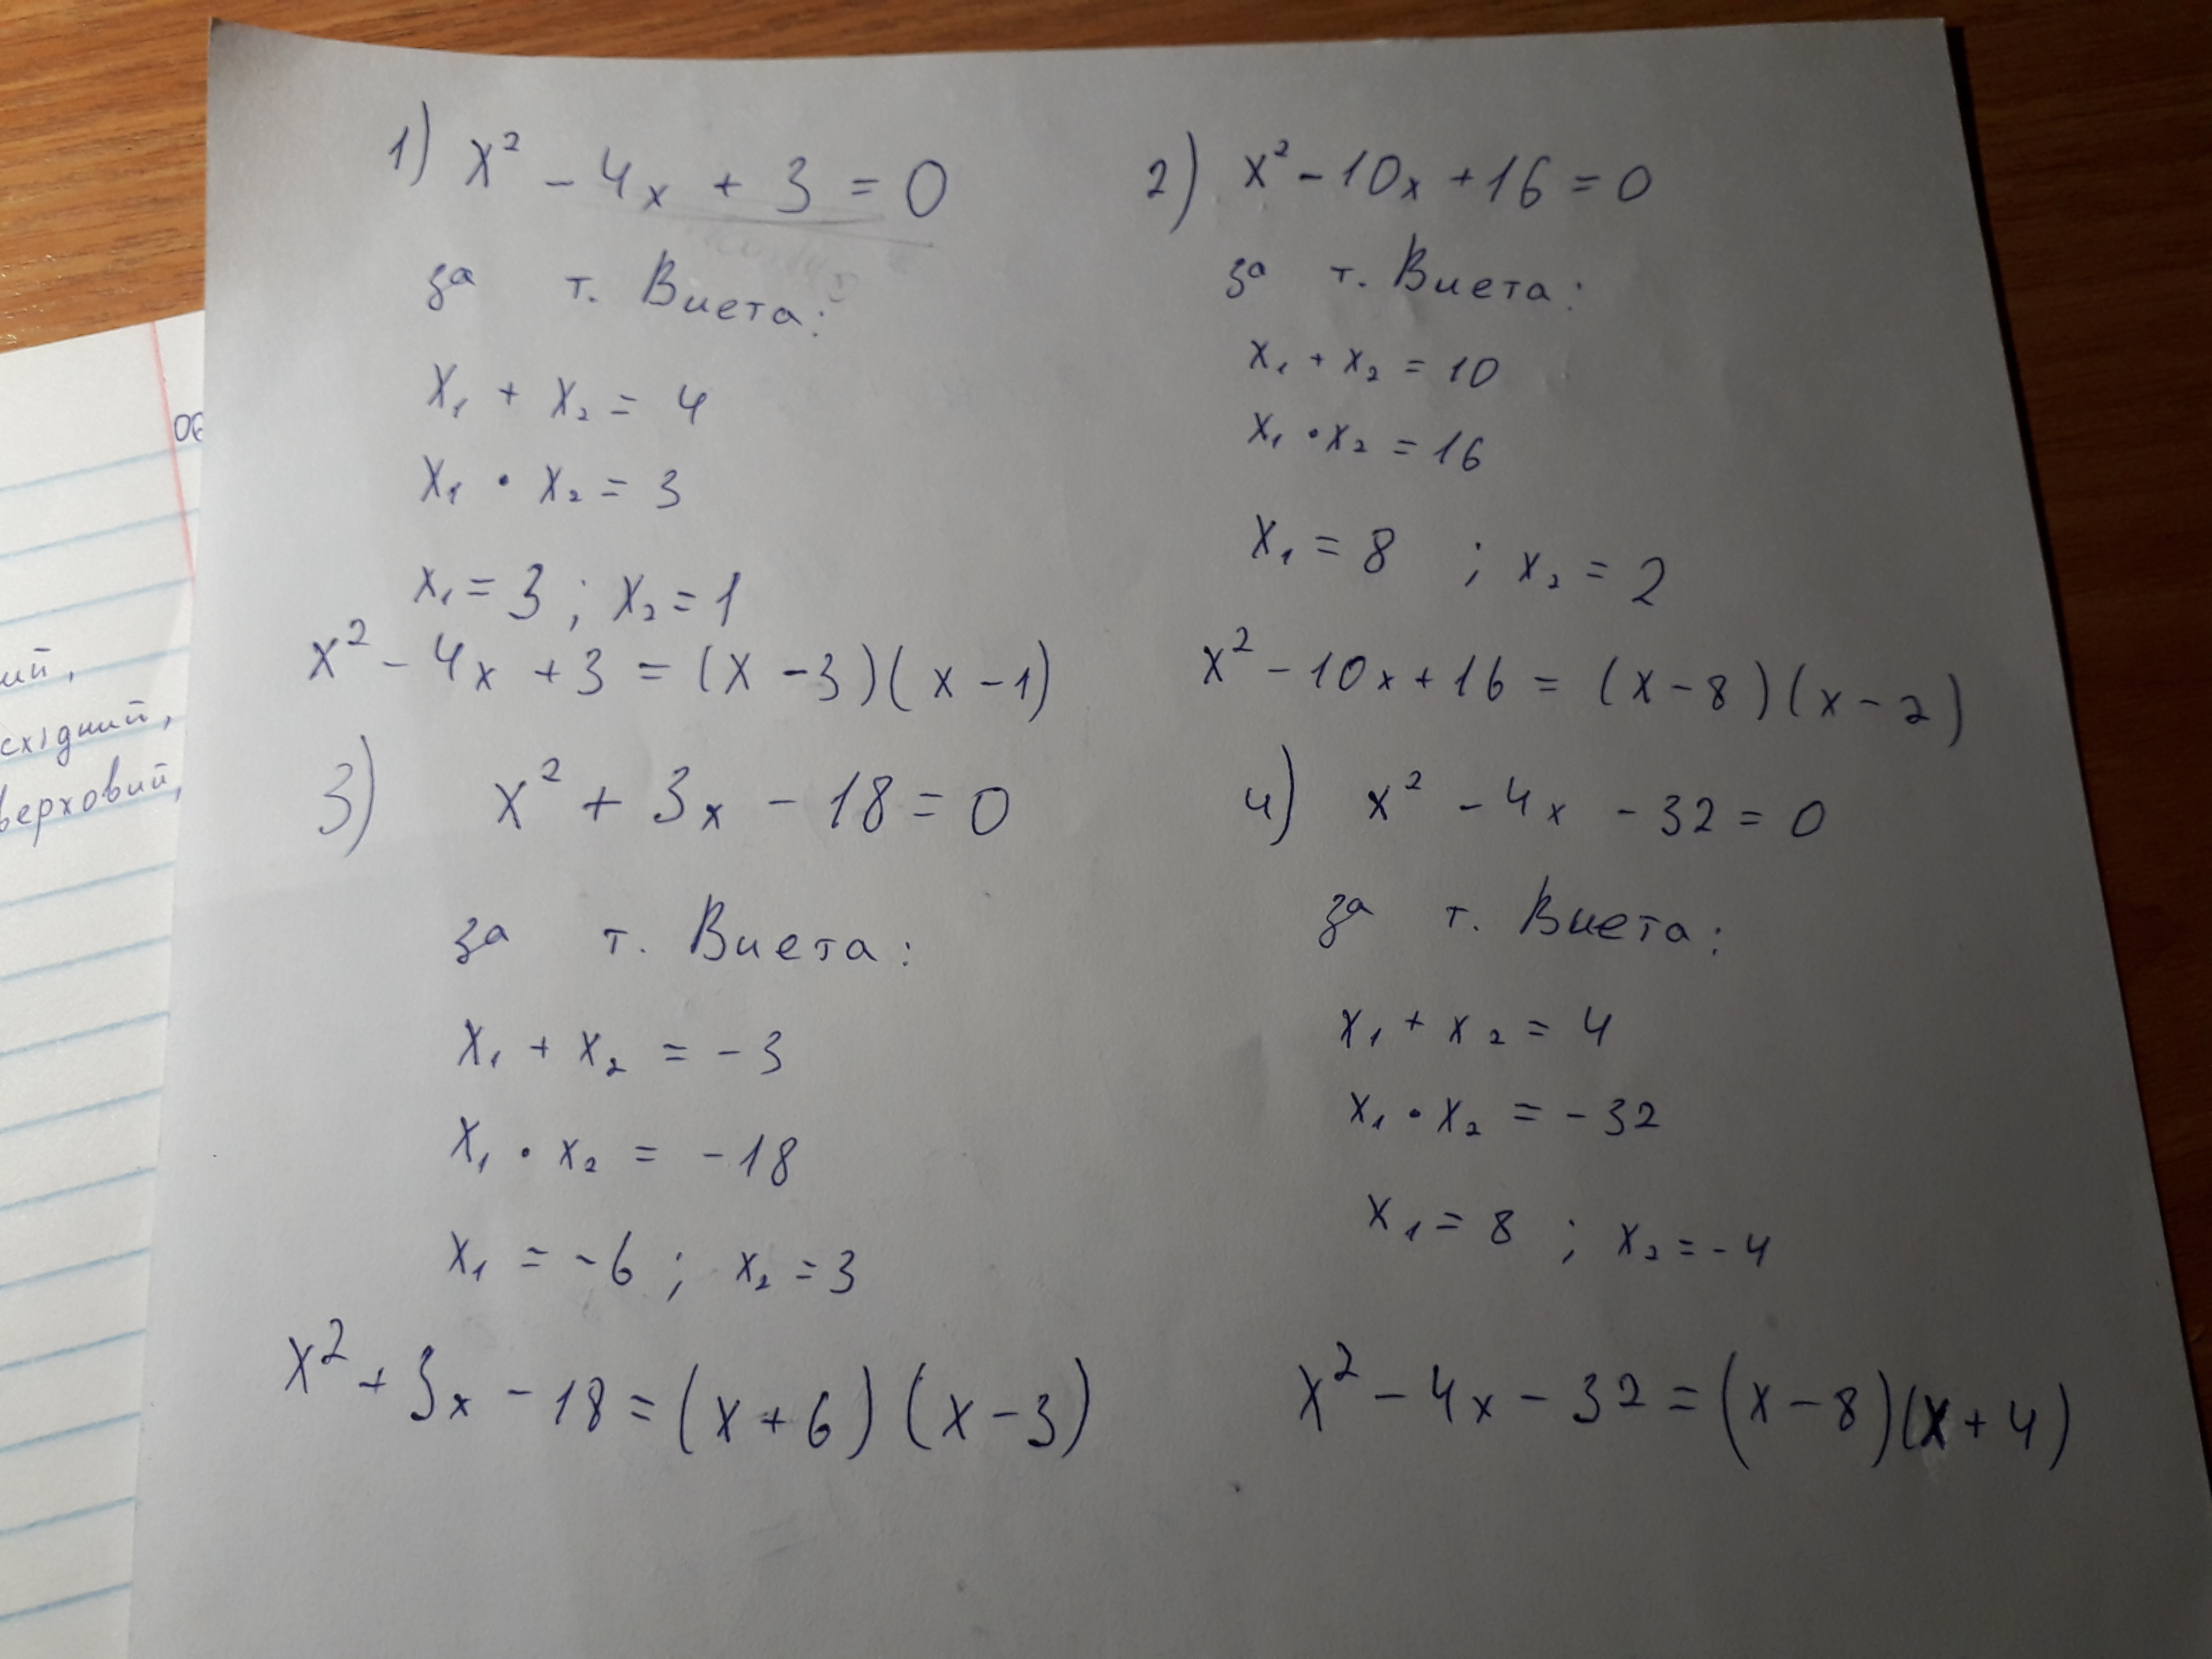 1) x² - 4x + 3 = 0
за т. Виета:
x₁ + x₂ = 4
x₁ · x₂ = 3
x₁ = 3 ; x₂ = 1
x² - 4x + 3 = (x - 3)(x - 1)
2) x² - 10x + 16 = 0
за т. Виета:
x₁ + x₂ = 10
x₁ · x₂ = 16
x₁ = 8 ; x₂ = 2
x² - 10x + 16 = (x - 8)(x - 2)
3) x² + 3x - 18 = 0
за т. Виета:
x₁ + x₂ = -3
x₁ · x₂ = -18
x₁ = -6 ; x₂ = 3
x² + 3x - 18 = (x + 6)(x - 3)
4) x² - 4x - 32 = 0
за т. Виета:
x₁ + x₂ = 4
x₁ · x₂ = -32
x₁ = 8 ; x₂ = -4
x² - 4x - 32 = (x - 8)(x + 4)
ий,
східний,
верховий,